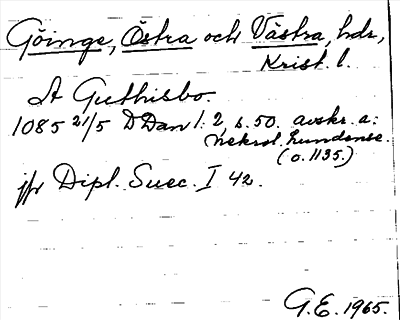 Göinge, Östra och Västra, hdr,
Krist. l.
A Guthisbo.
1085 21/5 DDan 1:2, s. 50. avskr. a:
Nekrol. Lundense.
(o. 1135.)
jfr Dipl. Suec. I 42.
G.E. 1965.